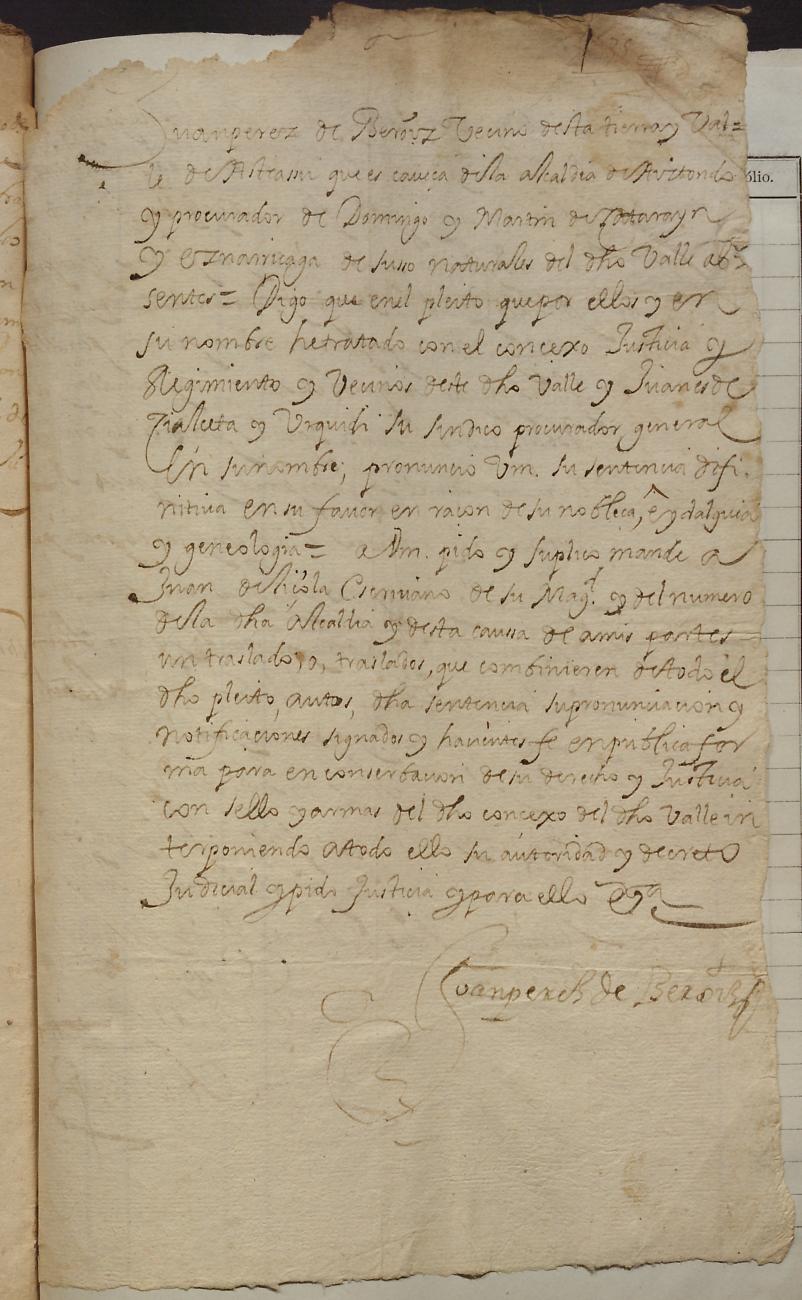 Juanperez de Beroiz Vecino desta tierra y Val=
le de Asteasu que es caueça dela alcaldia de Aiztondo
ólio.
y procurador de Domingo y Martin de
y eznairiçaga de suso naturales del dho Valle ab=
sentes= Digo que enel pleito quepor ellos y en
su nombre hetratado con el concexo Justicia y
Regimiento y Vecinos deste dho Valle y Juanes de
y Vrquidi su sindico procurador general
En sunombre; pronuncio Vm. su sentencia difi-
nitiua en su fauor en raçon de su nobleça, e ydalguia
y geneologia= a Vm. pido y suplico mande a
Juan de Escriuano de su Magd. y del numero
dela dha Alcaldia y desta caussa de amis partes
untraslado, o, traslados, que combinieren detodo el
dho pleito, autos, dha sentencia supronunciacion y
notificaciones signados y hacientes fe enpublica for
ma para en conserbacion de su derecho y Justicia
con sello yarmas del dho concexo del dho Valle in
terponiendo atodo ello su autoridad y decreto
Judicial ypido Justicia ypara ello
Juanperez de Beroiz